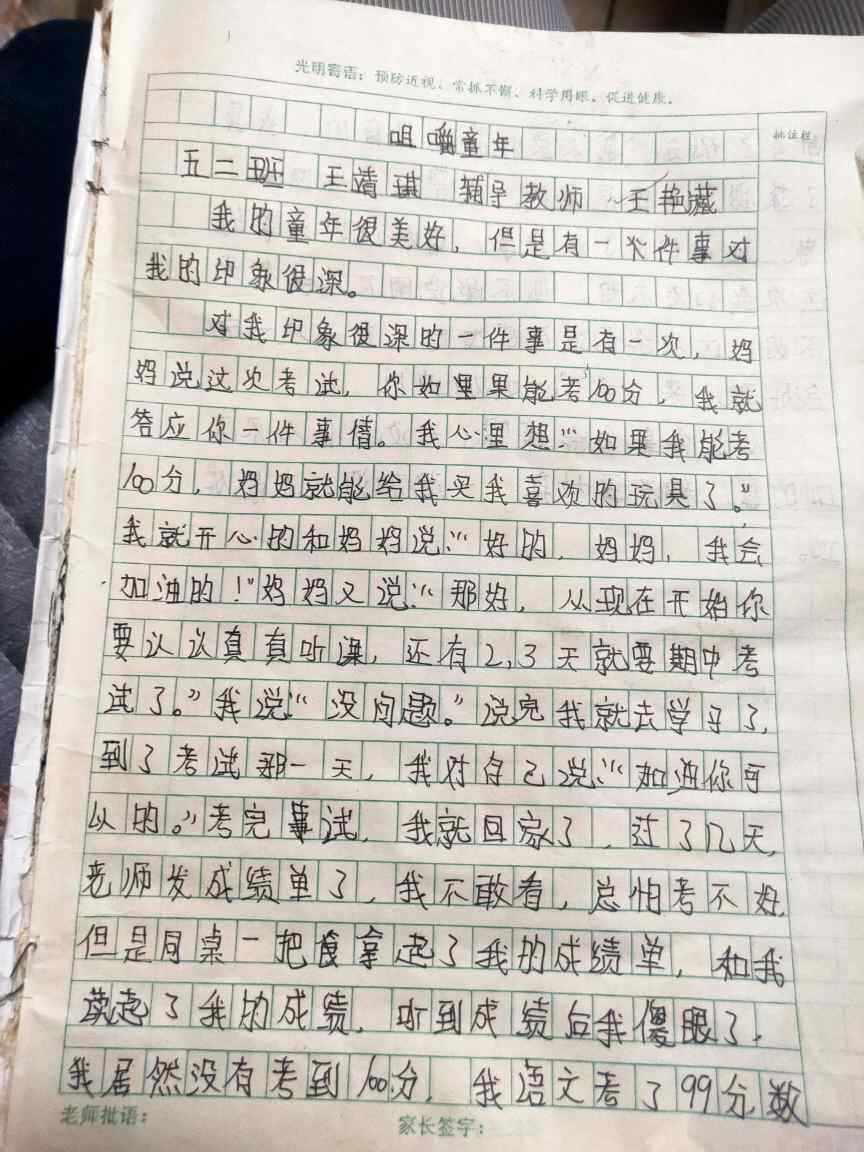 光明寄语：预防近视、常抓不懈、科学用眼、促进健康.
批注栏
咀嚼童年
五二班 王靖琪 辅导教师 王艳藏
我的童年很美好，但是有一件事对
我的印象很深。
对我印象很深的一件事是有一次，妈
妈说这次考试，你如果能考100分，我就
答应你一件事情。我心里想：“如果我能考
100分，妈妈就能给我买我喜欢的玩具了。”
我就开心的和妈妈说：“好的，妈妈，我会
加油的！”妈妈又说：“那好，从现在开始你
要认认真真听课，还有2,3天就要期中考
试了。”我说：“没问题。”说完我就去学习了，
到了考试那一天，我对自己说：“加油你可
以的。”考完试，我就回家了，过了几天，
老师发成绩单了，我不敢看，总怕考不好
但是同桌一把拿起了我的成绩单，和我
读起了我的成绩，听到成绩后我傻眼了.
我居然没有考到100分，我语文考了99分，数
老师批语：
家长签字：